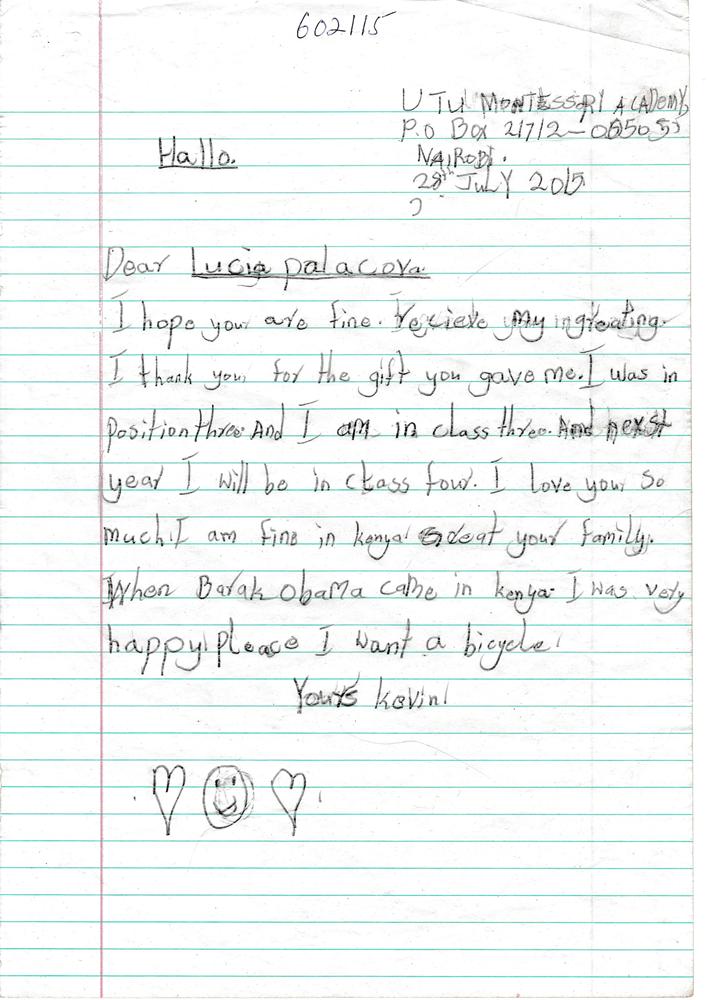 602115
UTU MONTESSORI ACADEMY
P.o Box 21712-
NAIROBI.
28th JULY 2015
Hallo.
Dear Lucia palacova.
I hope you are fine. recieve My ingreating.
I thank you for the gift you gave me. I was in
position three. And I am in class three. And next
year I will be in class four. I love you so
much. I am fine in kenya. Greeat your family.
When Barak obama came in kenya. I was very
happy. please I want a bicycle.
Yours kevin.